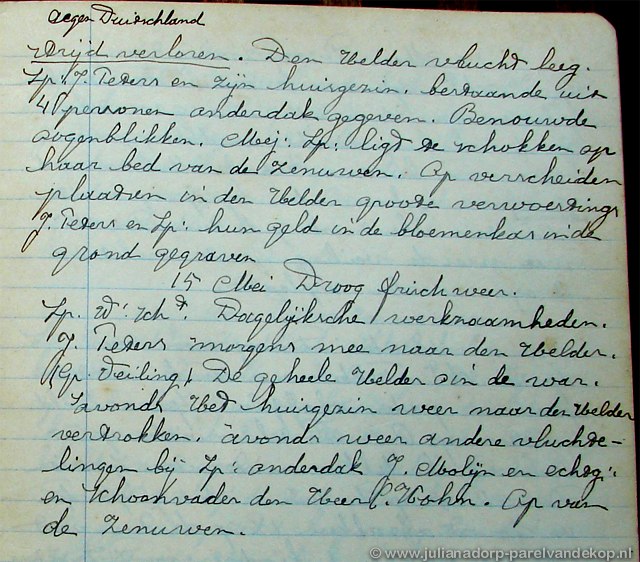 tegen Duitschland
strijd verloren. Den Helder vlucht leeg.
Sp: J. Peters en zijn huisgezin, bestaande uit
4 personen onderdak gegeven. Benouwde
oogenblikken. Mej: Sp: ligt te schokken op
haar bed van de zenuwen. Op verscheiden
plaatsen in den Helder groote verwoestings
J. Peters en Sp: hun geld in de bloemenkas in de
grond gegraven
15 Mei Droog frisch weer.
Sp. Dagelijksche werkzaamheden.
J. Peters 'smorgens mee naar den Helder.
(Gr. Veiling) De geheele Helder in de war.
'savonds Het huisgezin weer naar den Helder
vertrokken. 'savonds weer andere vluchte-
lingen bij Sp: onderdak J. Molijn en echtg:
en schoonvader den Heer P. Hohn. Op van
de zenuwen.
© www.julianadorp-parelvandekop.nl